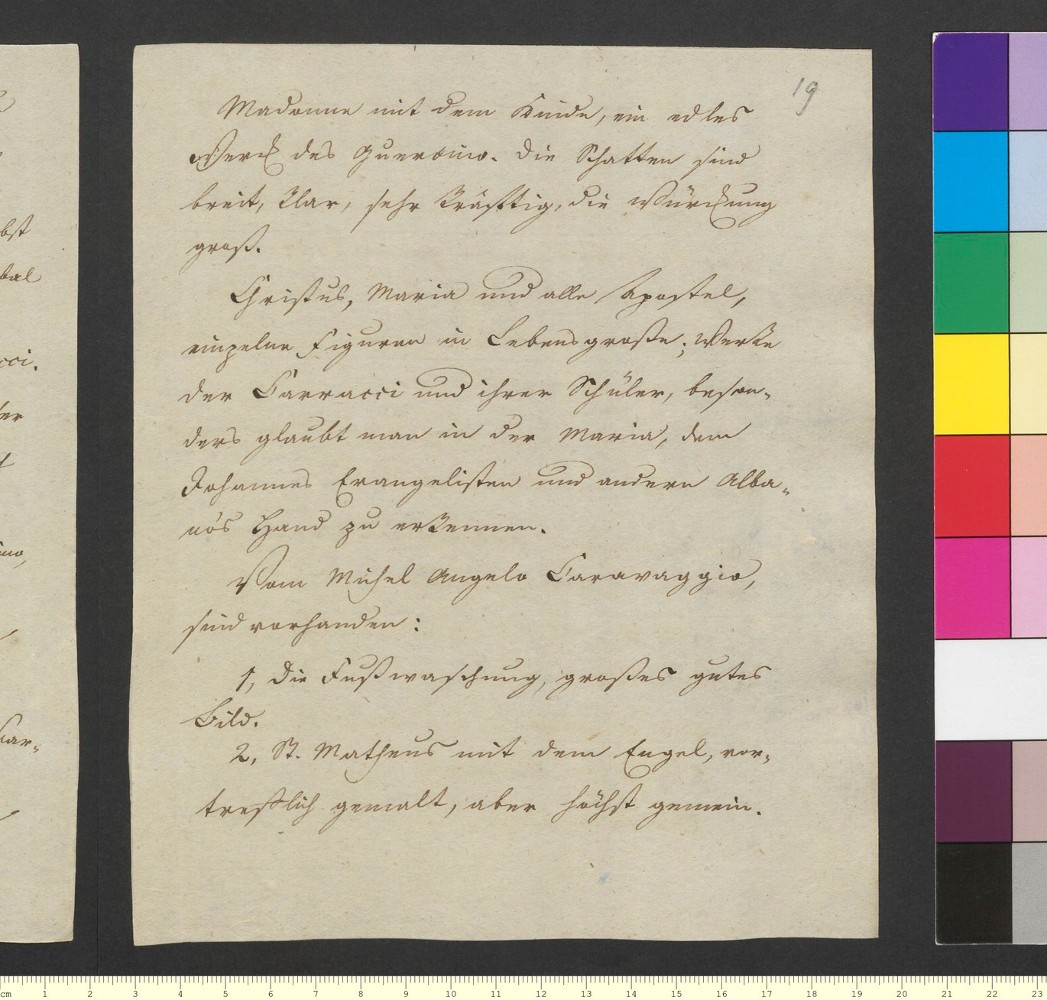 19
Madonne mit dem Kinde, ein edles
Werck des Guercino. Die Schatten sind
breit, klar, sehr kräfftig, die Würckung
groß.
Christus, Maria und alle Apostel,
einzelne Figuren in Lebensgroße; Werke
der Carracci und ihrer Schüler, beson-
ders glaubt man in der Maria, dem
Johannes Evangelisten und andern Alba-
nös Hand zu erkennen.
Vom Michel Angelo Caravaggio,
sind vorhanden:
1, Die Fußwaschung, großes gutes
Bild.
2, St. Matheus mit dem Engel, vor-
treflich gemalt, aber höchst gemein.